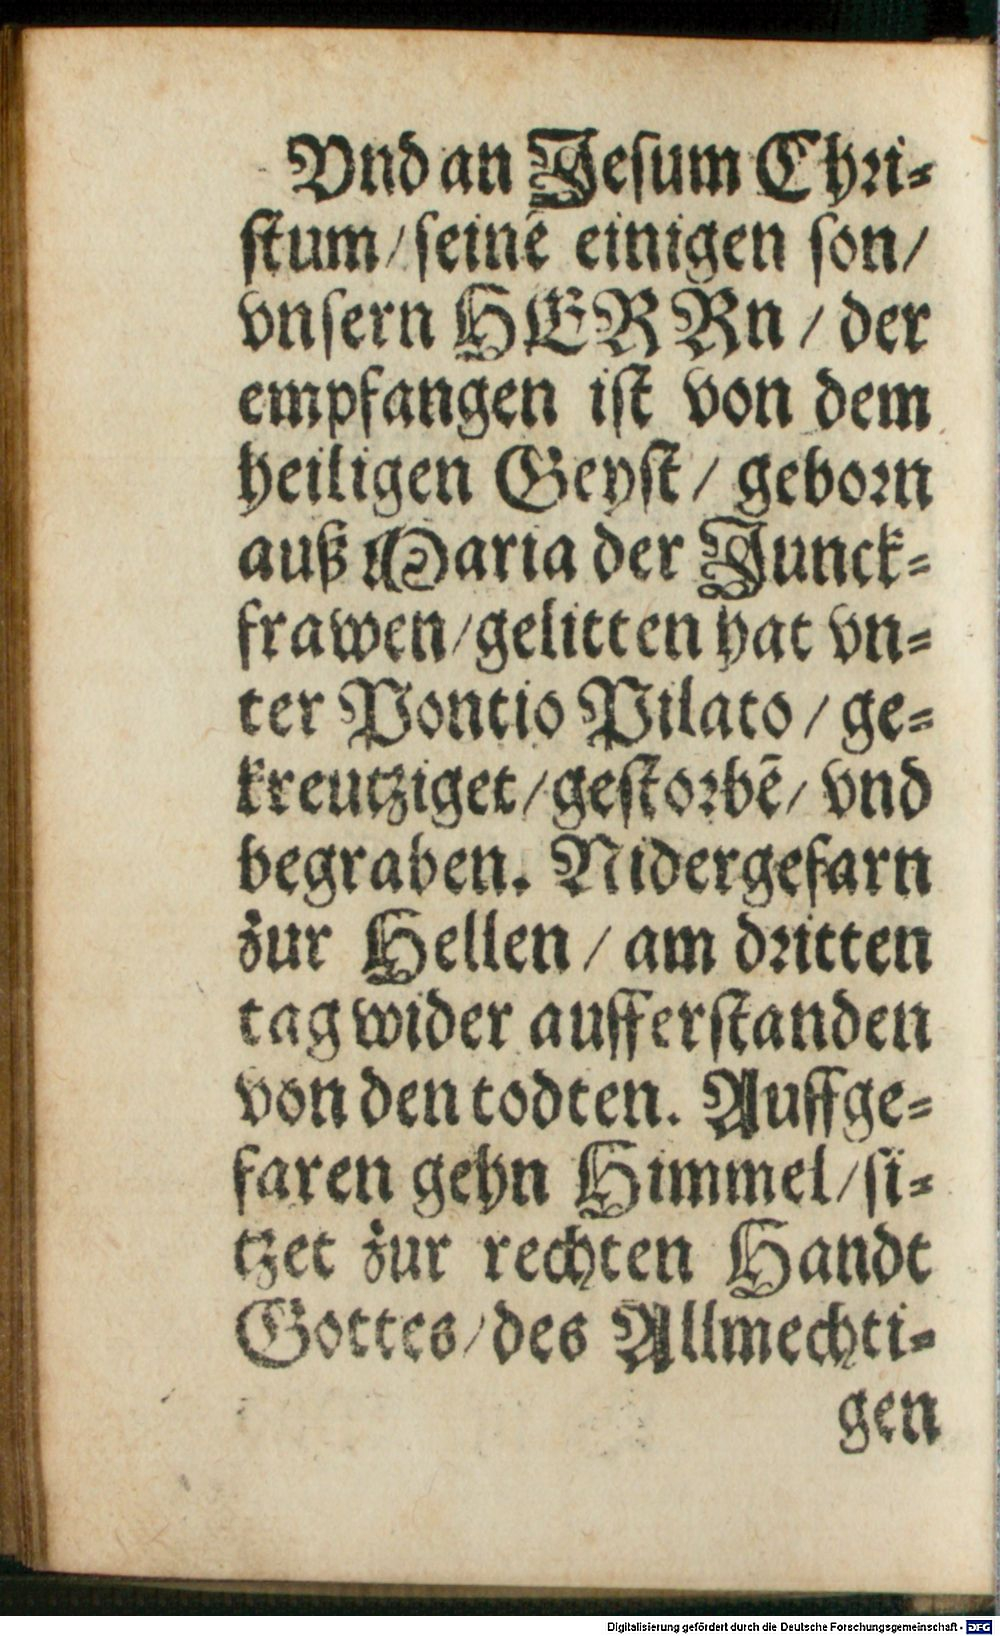 Vnd an Jesum Chri-
stum/ seinē einigen son/
vnsern HERRn/ der
empfangen ist von dem
heiligen Geyst/ geborn
auß Maria der Junck-
frawen/ gelitten hat vn-
ter Pontio Pilato/ ge-
kreutziget/ gestorbē/ vnd
begraben. Nidergefarn
zur Hellen/ am dritten
tag wider aufferstanden
von den todten. Auffge-
faren gehn Himmel/ si-
tzet zur rechten Handt
Gottes/ des Allmechti-
gen
Digitalisierung gefördert durch die Deutsche Forschungsgemeinschaft - DFG